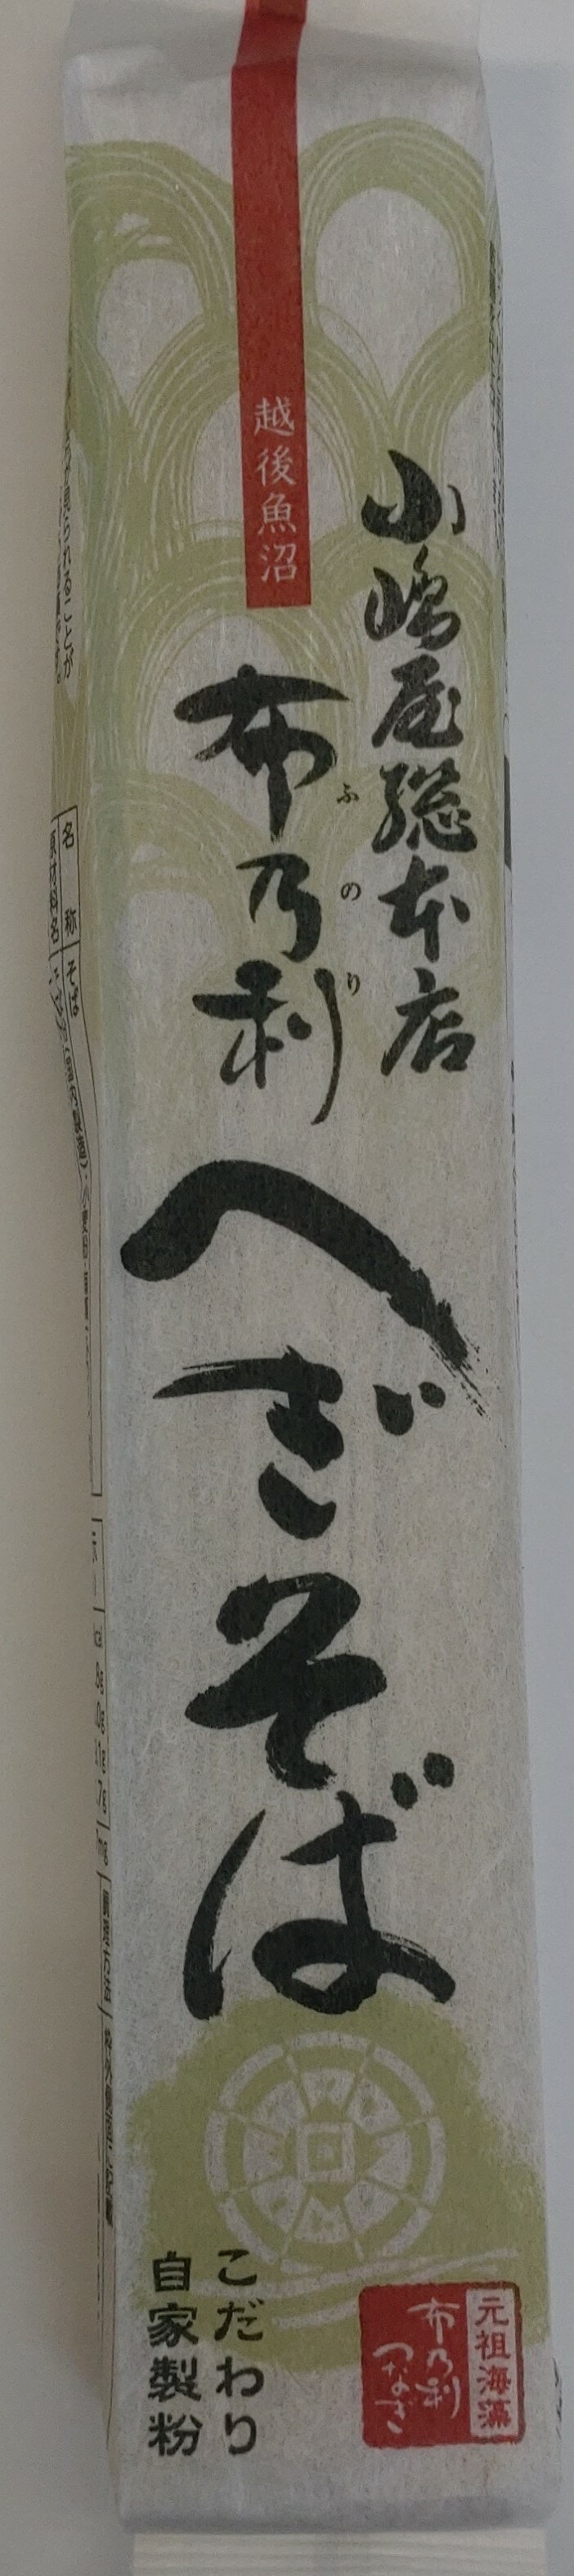 越後魚沼
小嶋屋総本店
布乃利
ふのり
へぎそば
こだわり
自家製粉
元祖海藻
布乃利
つなぎ
名称
そば
原材料名